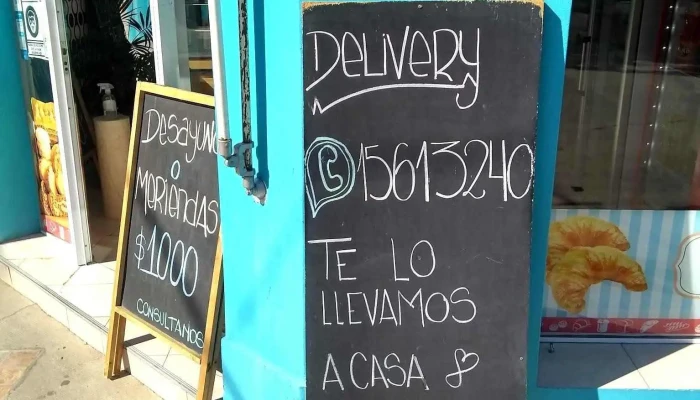 Desayuno
o
MERIENDAS
$1000
CONSULTANOS
DELIVERY
15613240
TE LO
LLEVAMOS
A CASA